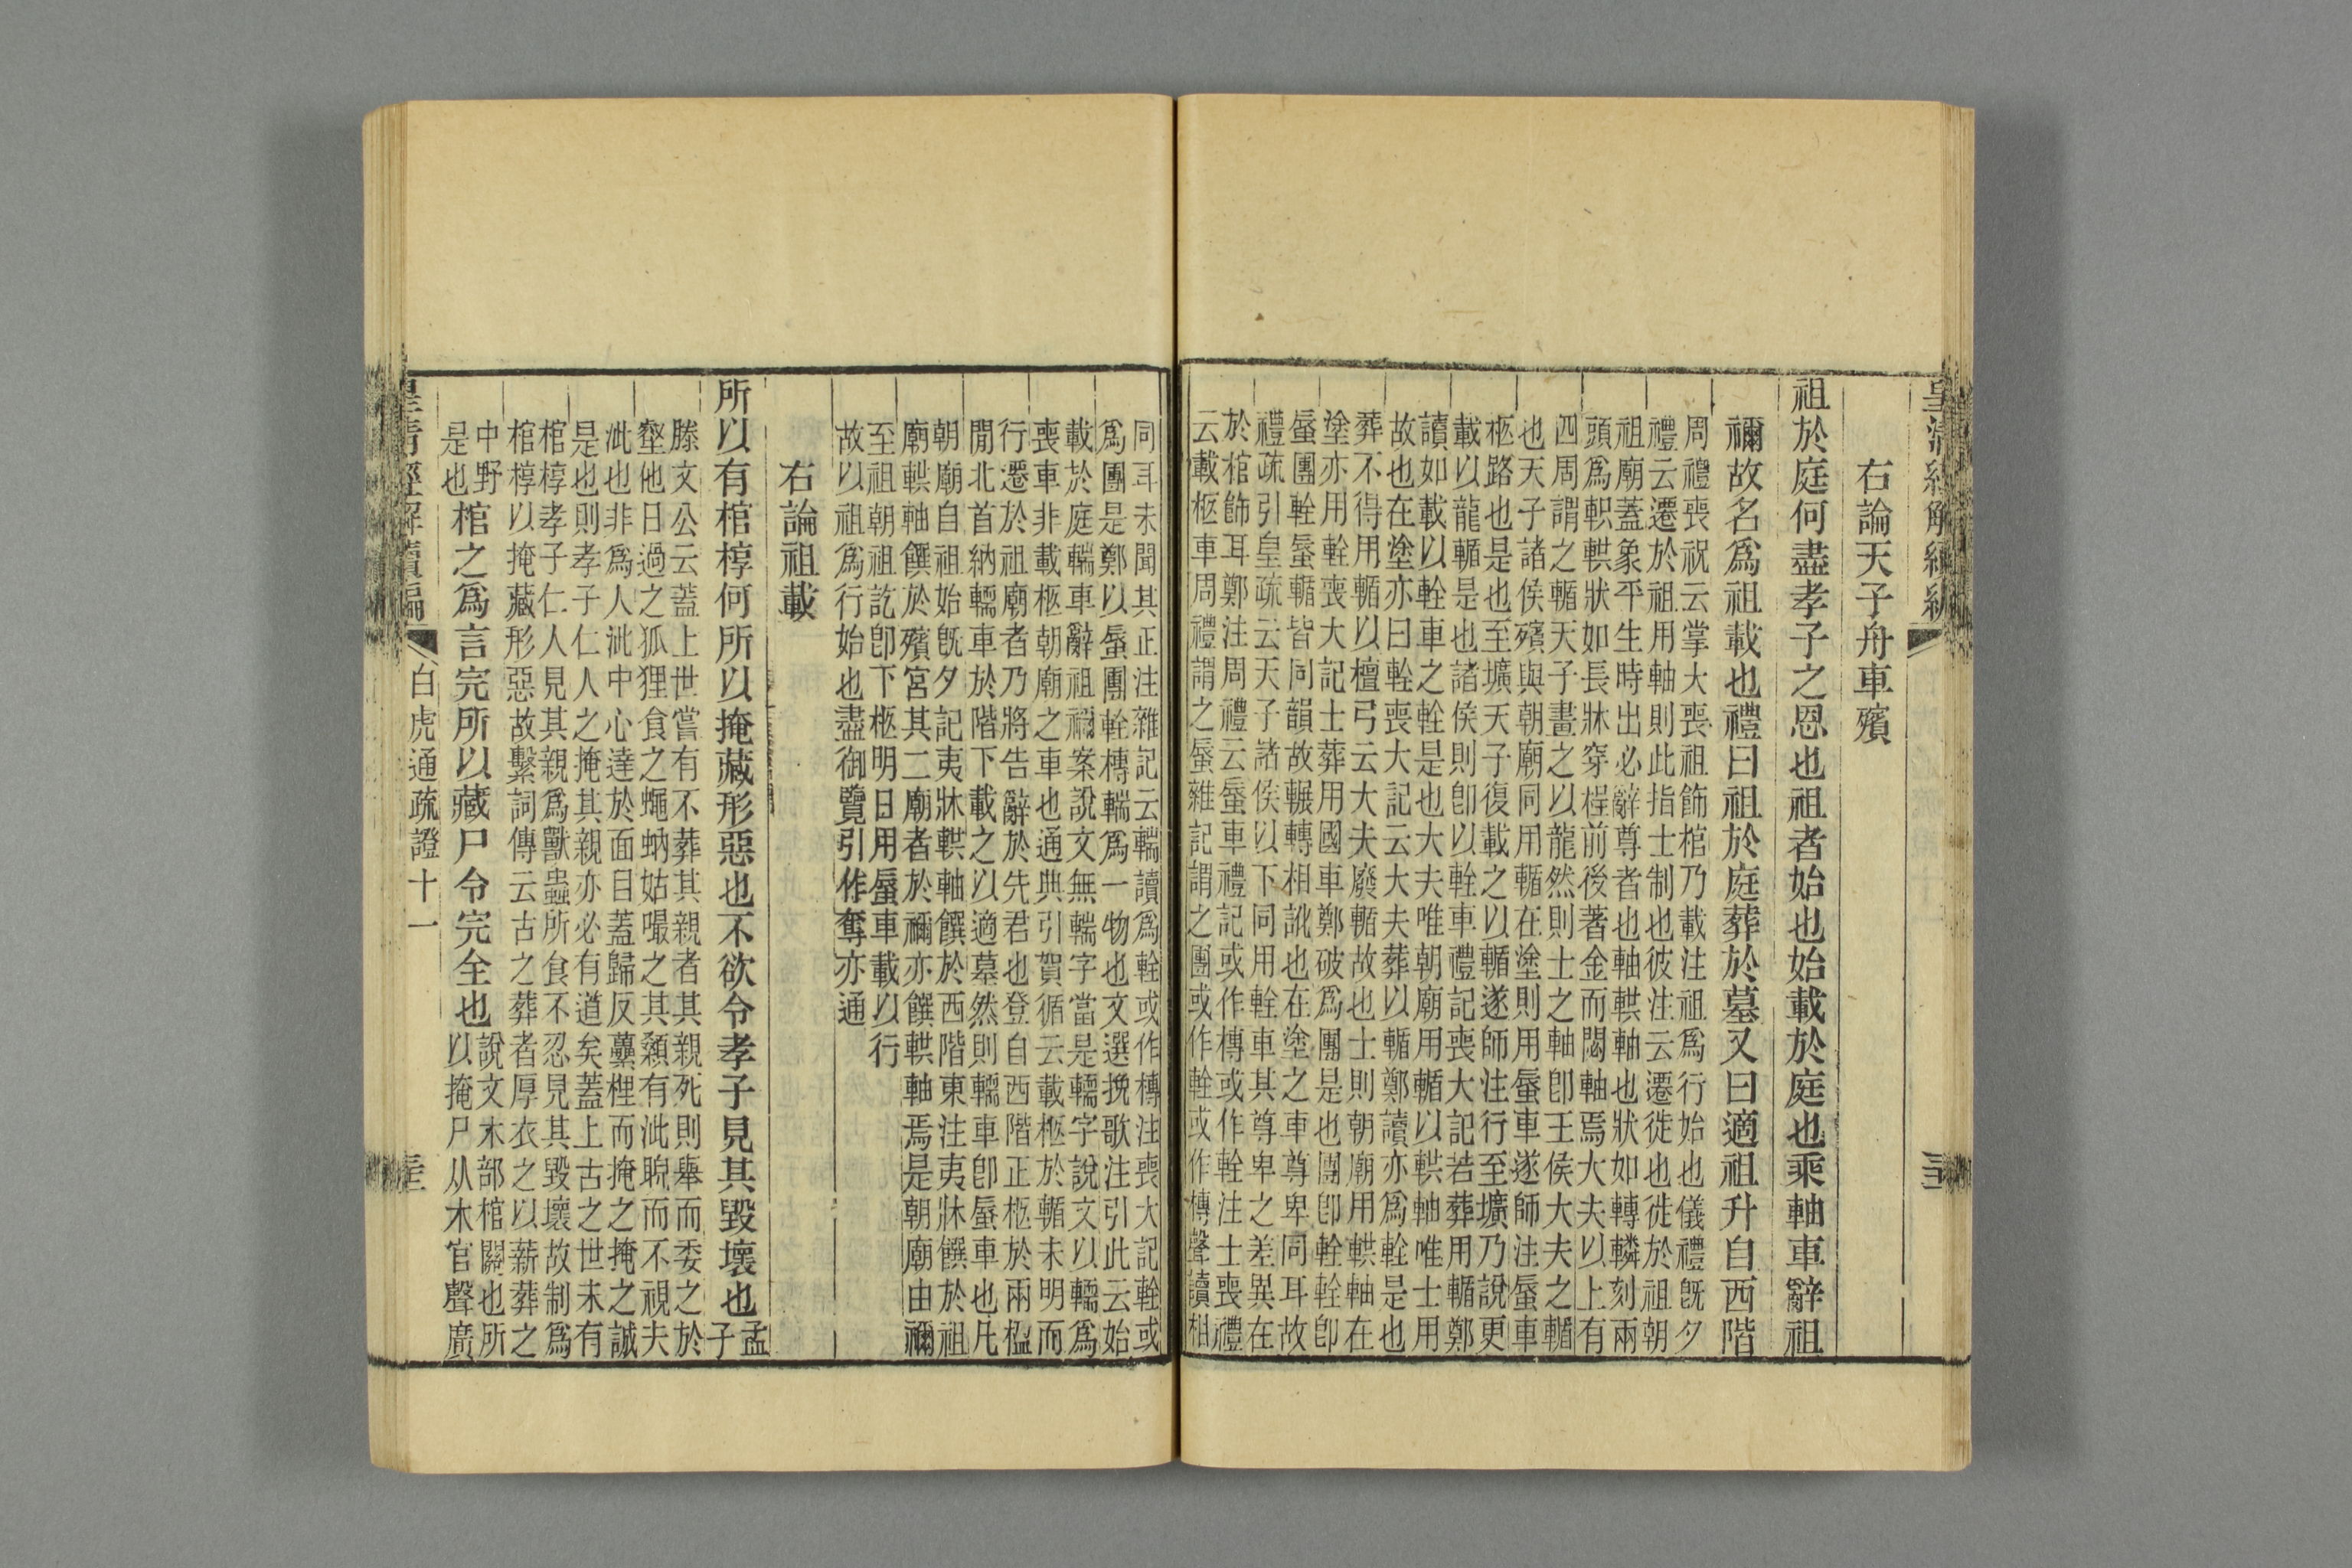 皇清經解續編
右論天子舟車殯
祖於庭何盡孝子之恩也祖者始也始載於庭也乘軸車辭祖
禰故名爲祖載也禮曰祖於庭葬於墓又曰適祖升自西階
周禮喪祝云掌大喪祖飾棺乃載注祖爲行始也儀禮旣夕
禮云遷於祖用軸則此指士制也彼注云遷徙也徙於祖朝
祖廟蓋象平生時出必辭尊者也軸輁軸也狀如轉轔刻兩
頭爲軹輁狀如長牀穿桯前後著金而關軸焉大夫以上有
四周謂之輴天子畫之以龍然則士之軸卽王侯大夫之輴
也天子諸侯殯與朝廟同用輴在塗則用蜃車遂師注蜃車
柩路也是也至壙天子復載之以輴遂師注行至壙乃說更
載以龍輴是也諸侯則卽以輇車禮記喪大記若葬用輴鄭
讀如載以輇車之輇是也大夫唯朝廟用輴以輁軸唯士用
故也在塗亦曰輇喪大記云大夫葬以輴鄭讀亦爲輇是也
葬不得用輴以檀弓云大夫廢輴故也士則朝廟用輁軸在
塗亦用輇喪大記士葬用國車鄭破爲團是也團卽輇輇卽
蜃團輇蜃輴皆同韻故輾轉相訛也在塗之車尊卑同耳故
禮疏引皇疏云天子諸侯以下同用輇車其尊卑之差異在
於棺飾耳鄭注周禮云蜃車禮記或作槫或作輇注士喪禮
云載柩車周禮謂之蜃雜記謂之團或作輇或作槫聲讀相
同耳未聞其正注雜記云輲讀爲輇或作槫注喪大記輇或
爲團是鄭以蜃團輇槫輲爲一物也文選挽歌注引此云始
載於庭輲車辭祖禰案說文無輲字當是轜字說文以轜爲
喪車非載柩朝廟之車也通典引賀循云載柩於輴未明而
行遷於祖廟者乃將告辭於先君也登自西階正柩於兩楹
閒北首納轜車於階下載之以適墓然則轜車卽蜃車也凡
朝廟自祖始旣夕記夷牀輁軸饌於西階東注夷牀饌於祖
廟輁軸饌於殯宮其二廟者於禰亦饌輁軸焉是朝廟由禰
至祖朝祖訖卽下柩明日用蜃車載以行
故以祖爲行始也盡御覽引作奪亦通
右論祖載
所以有棺椁何所以掩藏形惡也不欲令孝子見其毀壞也孟子
滕文公云蓋上世嘗有不葬其親者其親死則舉而委之於
壑他日過之狐狸食之蠅蚋姑嘬之其顙有泚睨而不視夫
泚也非爲人泚中心達於面目蓋歸反虆梩而掩之掩之誠
是也則孝子仁人之掩其親亦必有道矣蓋上古之世未有
棺椁孝子仁人見其親爲獸蟲所食不忍見其毀壞故制爲
棺椁以掩藏形惡故繫詞傳云古之葬者厚衣之以薪葬之
中野是也棺之爲言完所以藏尸令完全也說文木部棺關也所以掩尸从木官聲廣
皇清經解續編 白虎通疏證十一